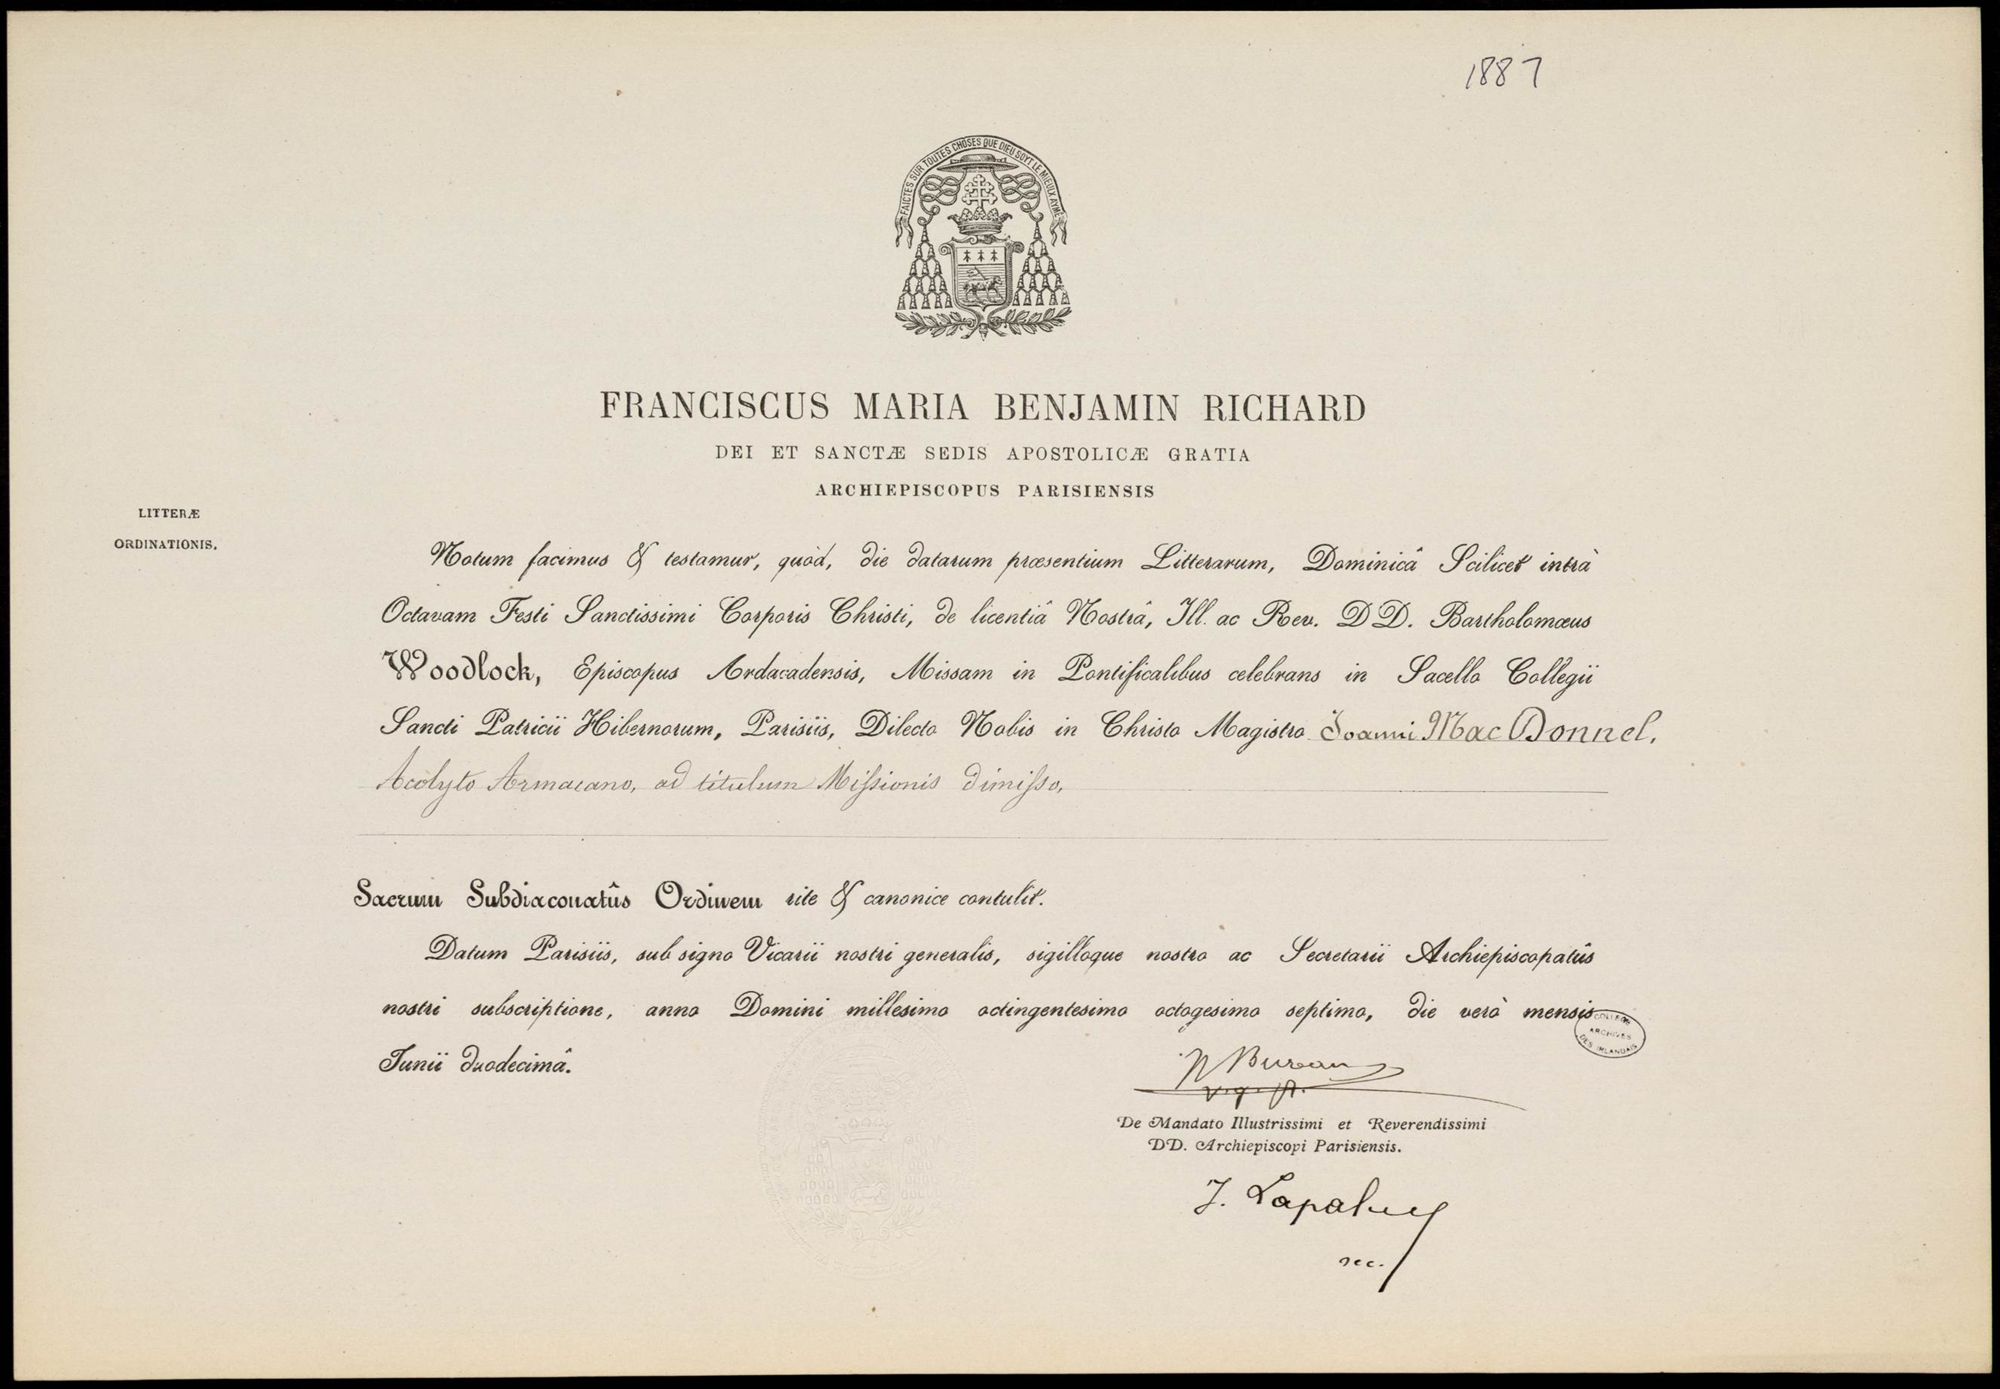 1887
FAICTES SUR TOUTES CHOSES QUE DIEU SOYT LE MIEUX AYMÉ
FRANCISCUS MARIA BENJAMIN RICHARD
DEI ET SANCTÆ SEDIS APOSTOLICÆ GRATIA
ARCHIEPISCOPUS PARISIENSIS
LITTERÆ
ORDINATIONIS.
Notum facimus & testamur, quòd, die datarum præsentium Litterarum, Dominicâ Scilicet intrà
Octavam Festi Sanctissimi Corporis Christi, de licentiâ Nostrâ, Ill. ac Rev. DD. Bartholomæus
Woodlock, Episcopus Ardacadensis, Missam in Pontificalibus celebrans in Sacello Collegii
Sancti Patricii Hibernorum, Parisiis, Dilecto Nobis in Christo Magistro Joanni Mac Donnel,
Acolyto Armacano, ad titulum Missionis dimisso,
Sacrum Subdiaconatûs Ordinem rite & canonice contulit.
Datum Parisiis, sub signo Vicarii nostri generalis, sigilloque nostro ac Secretarii Archiepiscopatûs
nostri subscriptione, anno Domini millesimo octingentesimo octogesimo septimo, die verò mensis
Junii duodecimâ.
COLLEGE
ARCHIVES
DES IRLANDAIS
v. g.
De Mandato Illustrissimi et Reverendissimi
DD. Archiepiscopi Parisiensis.
J.
sec.